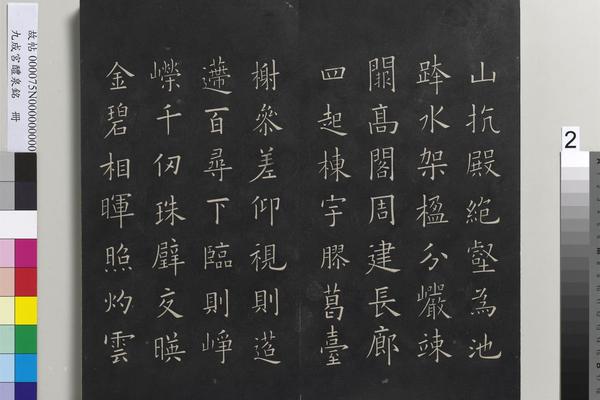 山抗殿絶壑為池
跨水架楹分巗竦
闕髙閣周建長廊
四起棟宇膠葛臺
榭叅差仰視則迢
遰百尋下臨則崢
嶸千仞珠璧交暎
金碧相暉照灼雲
故帖 000075N000000000
九成宮醴泉銘 冊
2